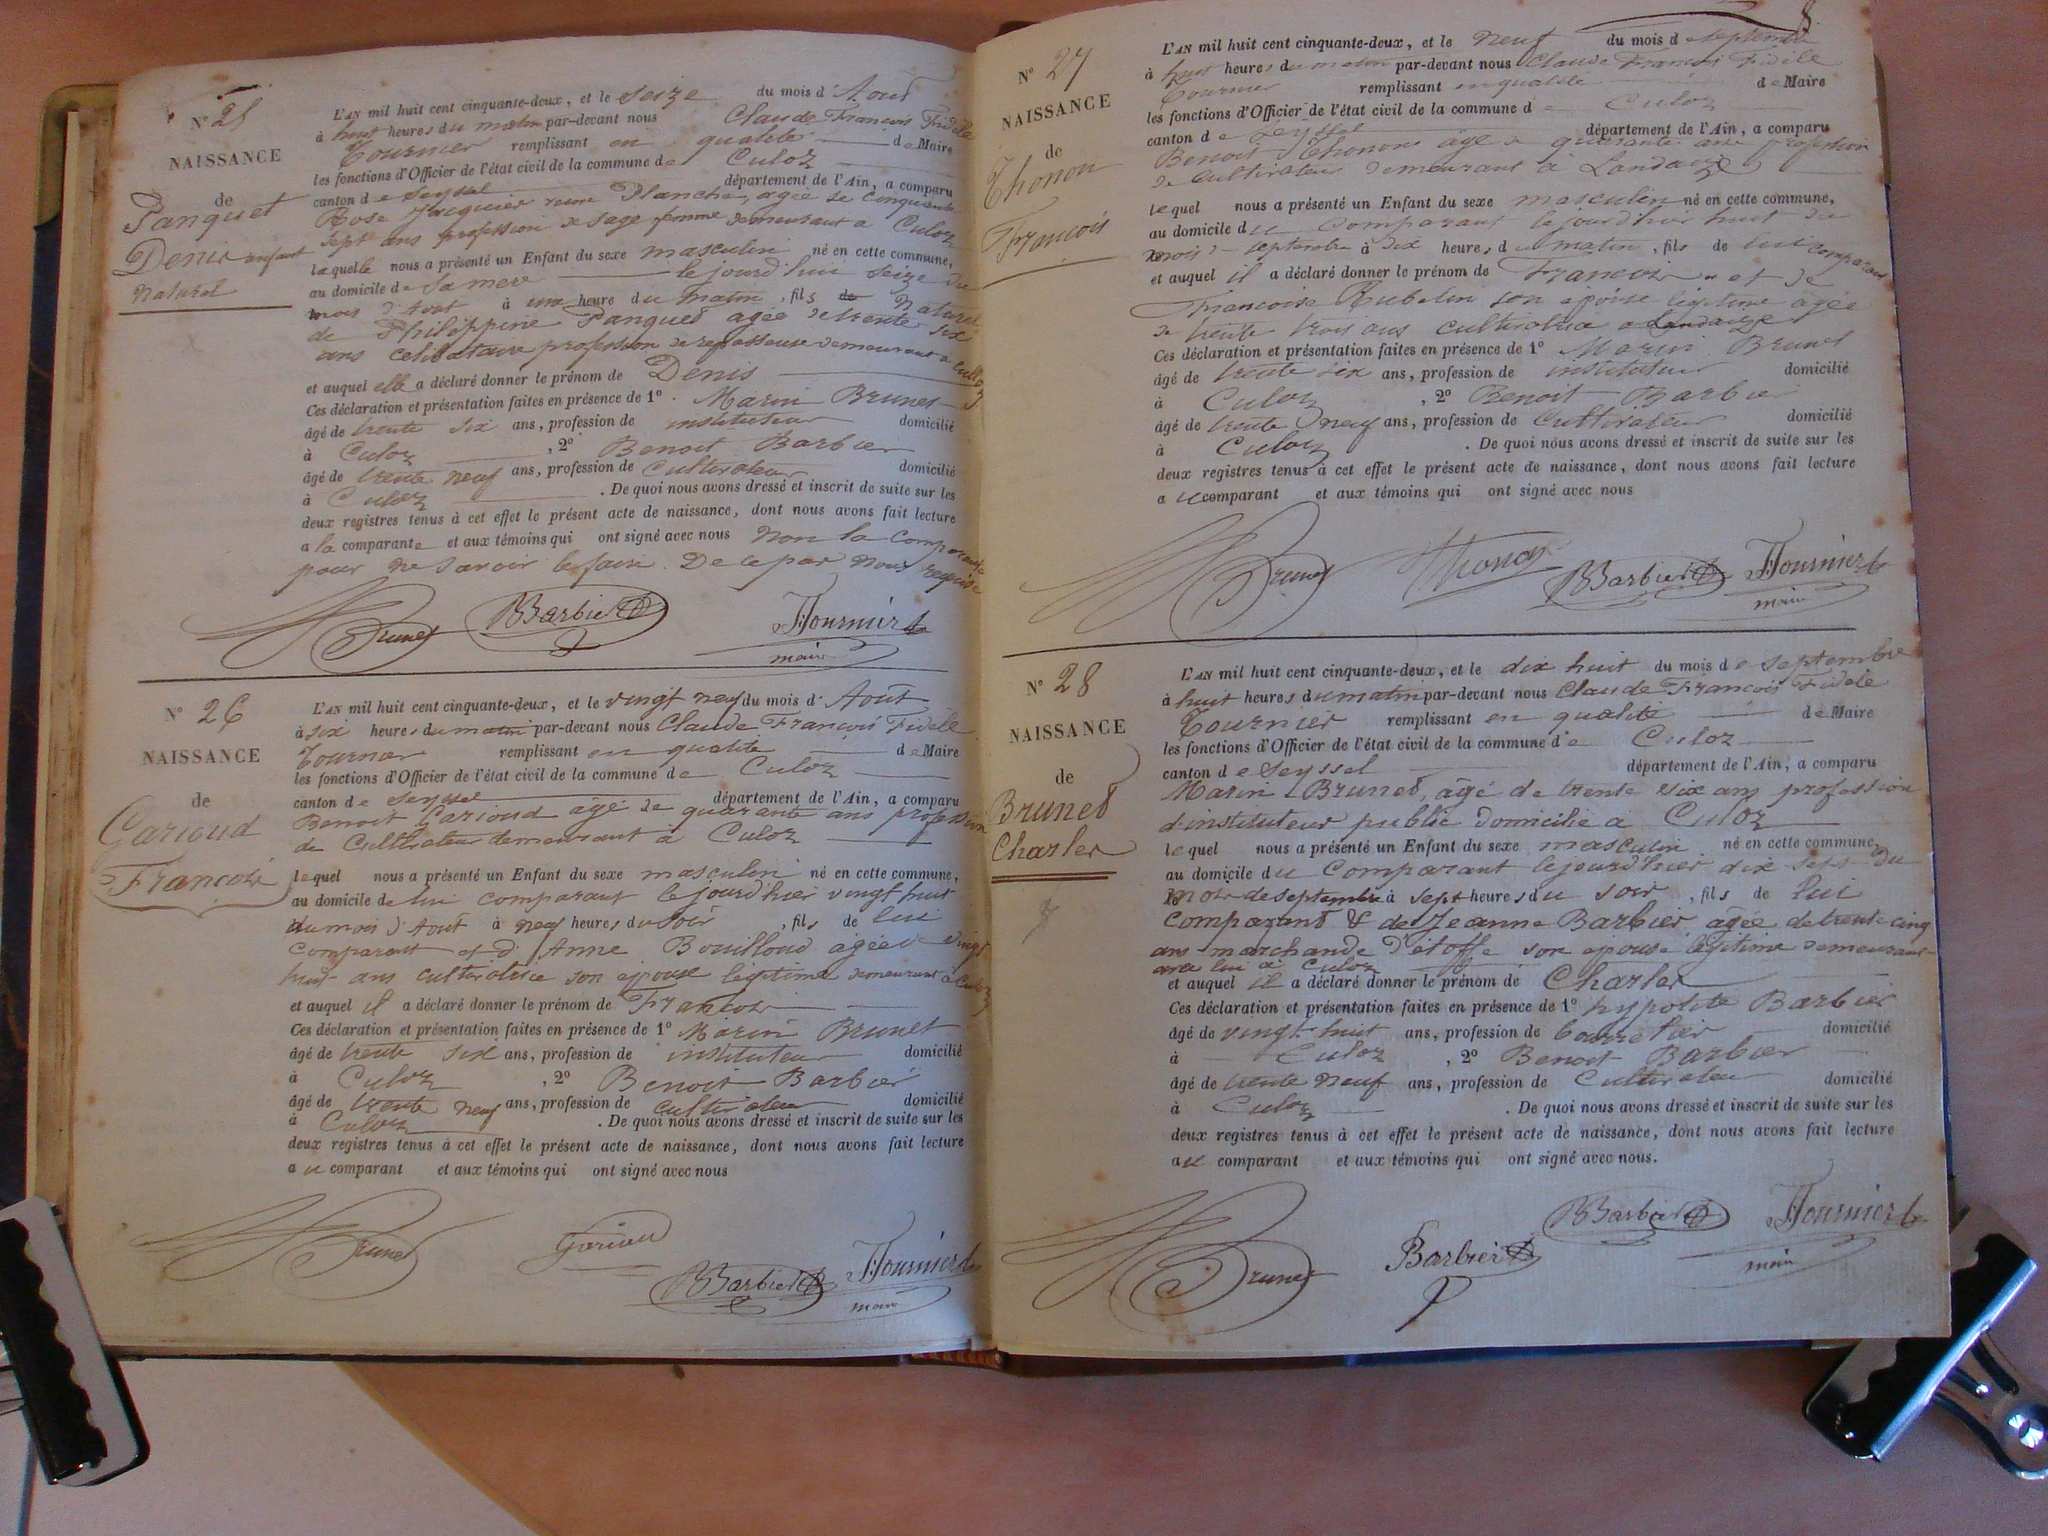 N° 25
NAISSANCE
de
Panquet
Denis enfant
naturel
L'AN mil huit cent cinquante-deux, et le seize du mois d'Aout
à huit heures du matin par-devant nous Claude François Fidèle
Tournier remplissant en qualité de Maire
les fonctions d'Officier de l'état civil de la commune de Culoz
canton de Seyssel département de l'Ain, a comparu
Rose Jacquier veuve Planche, agée de cinquante
sept ans profession de sage femme demeurant a Culoz
laquelle nous a présenté un Enfant du sexe masculin né en cette commune,
au domicile de sa mere le jourd'hui seize du
mois d'Aout à une heure du matin, fils de Naturel
de Philippine Panquet agée de trente six
ans celibataire profession de repasseuse demeurant a Culoz
et auquel elle a déclaré donner le prénom de Denis
Ces déclaration et présentation faites en présence de 1° Marin Brunet
âgé de trente six ans, profession de instituteur domicilié
à Culoz, 2° Benoit Barbier
âgé de trente neuf ans, profession de Cultivateur domicilié
à Culoz. De quoi nous avons dressé et inscrit de suite sur les
deux registres tenus à cet effet le présent acte de naissance, dont nous avons fait lecture
a la comparante et aux témoins qui ont signé avec nous non la comparante
pour ne savoir le faire. De ce par nous requise
Brunet BBarbier Tournier
maire
N° 26
NAISSANCE
de
Garioud
François
L'AN mil huit cent cinquante-deux, et le vingt neuf du mois d'Aout
à six heures du matin par-devant nous Claude François Fidèle
Tournier remplissant en qualité de Maire
les fonctions d'Officier de l'état civil de la commune de Culoz
canton de Seyssel département de l'Ain, a comparu
Benoit Garioud âgé de quarante ans profession
de Cultivateur demeurant à Culoz
lequel nous a présenté un Enfant du sexe masculin né en cette commune,
au domicile de lui comparant le jourd'hier vingt huit
du mois d'Aout à neuf heures du soir, fils de lui
comparant et d'Anne Bouilloud agée de vingt
huit ans cultivatrice son epouse legitime demeurant a Culoz
et auquel il a déclaré donner le prénom de François
Ces déclaration et présentation faites en présence de 1° Marin Brunet
âgé de trente six ans, profession de instituteur domicilié
à Culoz, 2° Benoit Barbier
âgé de trente neuf ans, profession de cultivateur domicilié
à Culoz. De quoi nous avons dressé et inscrit de suite sur les
deux registres tenus à cet effet le présent acte de naissance, dont nous avons fait lecture
au comparant et aux témoins qui ont signé avec nous
Brunet BBarbier Tournier
maire
8
N° 27
NAISSANCE
de
Thonon
François
L'AN mil huit cent cinquante-deux, et le neuf du mois de septembre
à huit heures du matin par-devant nous Claude François Fidèle
Tournier remplissant en qualité de Maire
les fonctions d'Officier de l'état civil de la commune de Culoz
canton de Seyssel département de l'Ain, a comparu
Benoit Thonon âgé de quarante ans profession
de Cultivateur demeurant à Landaize
lequel nous a présenté un Enfant du sexe masculin né en cette commune,
au domicile du comparant le jourd'hier huit du
mois de septembre à dix heures du matin, fils de lui comparant
et auquel il a déclaré donner le prénom de François et de
Francoise Rubelin son épouse légitime agée
de trente trois ans cultivatrice a Landaize
Ces déclaration et présentation faites en présence de 1° Marin Brunet
âgé de trente six ans, profession de instituteur domicilié
à Culoz, 2° Benoit Barbier
âgé de trente neuf ans, profession de Cultivateur domicilié
à Culoz. De quoi nous avons dressé et inscrit de suite sur les
deux registres tenus à cet effet le présent acte de naissance, dont nous avons fait lecture
au comparant et aux témoins qui ont signé avec nous
Brunet Thonon BBarbier Tournier
maire
N° 28
NAISSANCE
de
Brunet
Charles
L'AN mil huit cent cinquante-deux, et le dix huit du mois de septembre
à huit heures du matin par-devant nous Claude François Fidèle
Tournier remplissant en qualité de Maire
les fonctions d'Officier de l'état civil de la commune de Culoz
canton de Seyssel département de l'Ain, a comparu
Marin Brunet, âgé de trente six ans profession
d'instituteur public domicilié a Culoz
lequel nous a présenté un Enfant du sexe masculin né en cette commune,
au domicile du comparant le jourd'hier dix sept du
mois de septembre à sept heures du soir, fils de lui
comparant & de Jeanne Barbier agée de trente cinq
ans marchande d'étoffe son epouse légitime demeurant
avec lui a Culoz
et auquel il a déclaré donner le prénom de Charles
Ces déclaration et présentation faites en présence de 1° hypolite Barbier
âgé de vingt huit ans, profession de bourrelier domicilié
à Culoz, 2° Benoit Barbier
âgé de trente neuf ans, profession de Cultivateur domicilié
à Culoz. De quoi nous avons dressé et inscrit de suite sur les
deux registres tenus à cet effet le présent acte de naissance, dont nous avons fait lecture
au comparant et aux témoins qui ont signé avec nous.
Brunet Barbier BBarbier Tournier
maire